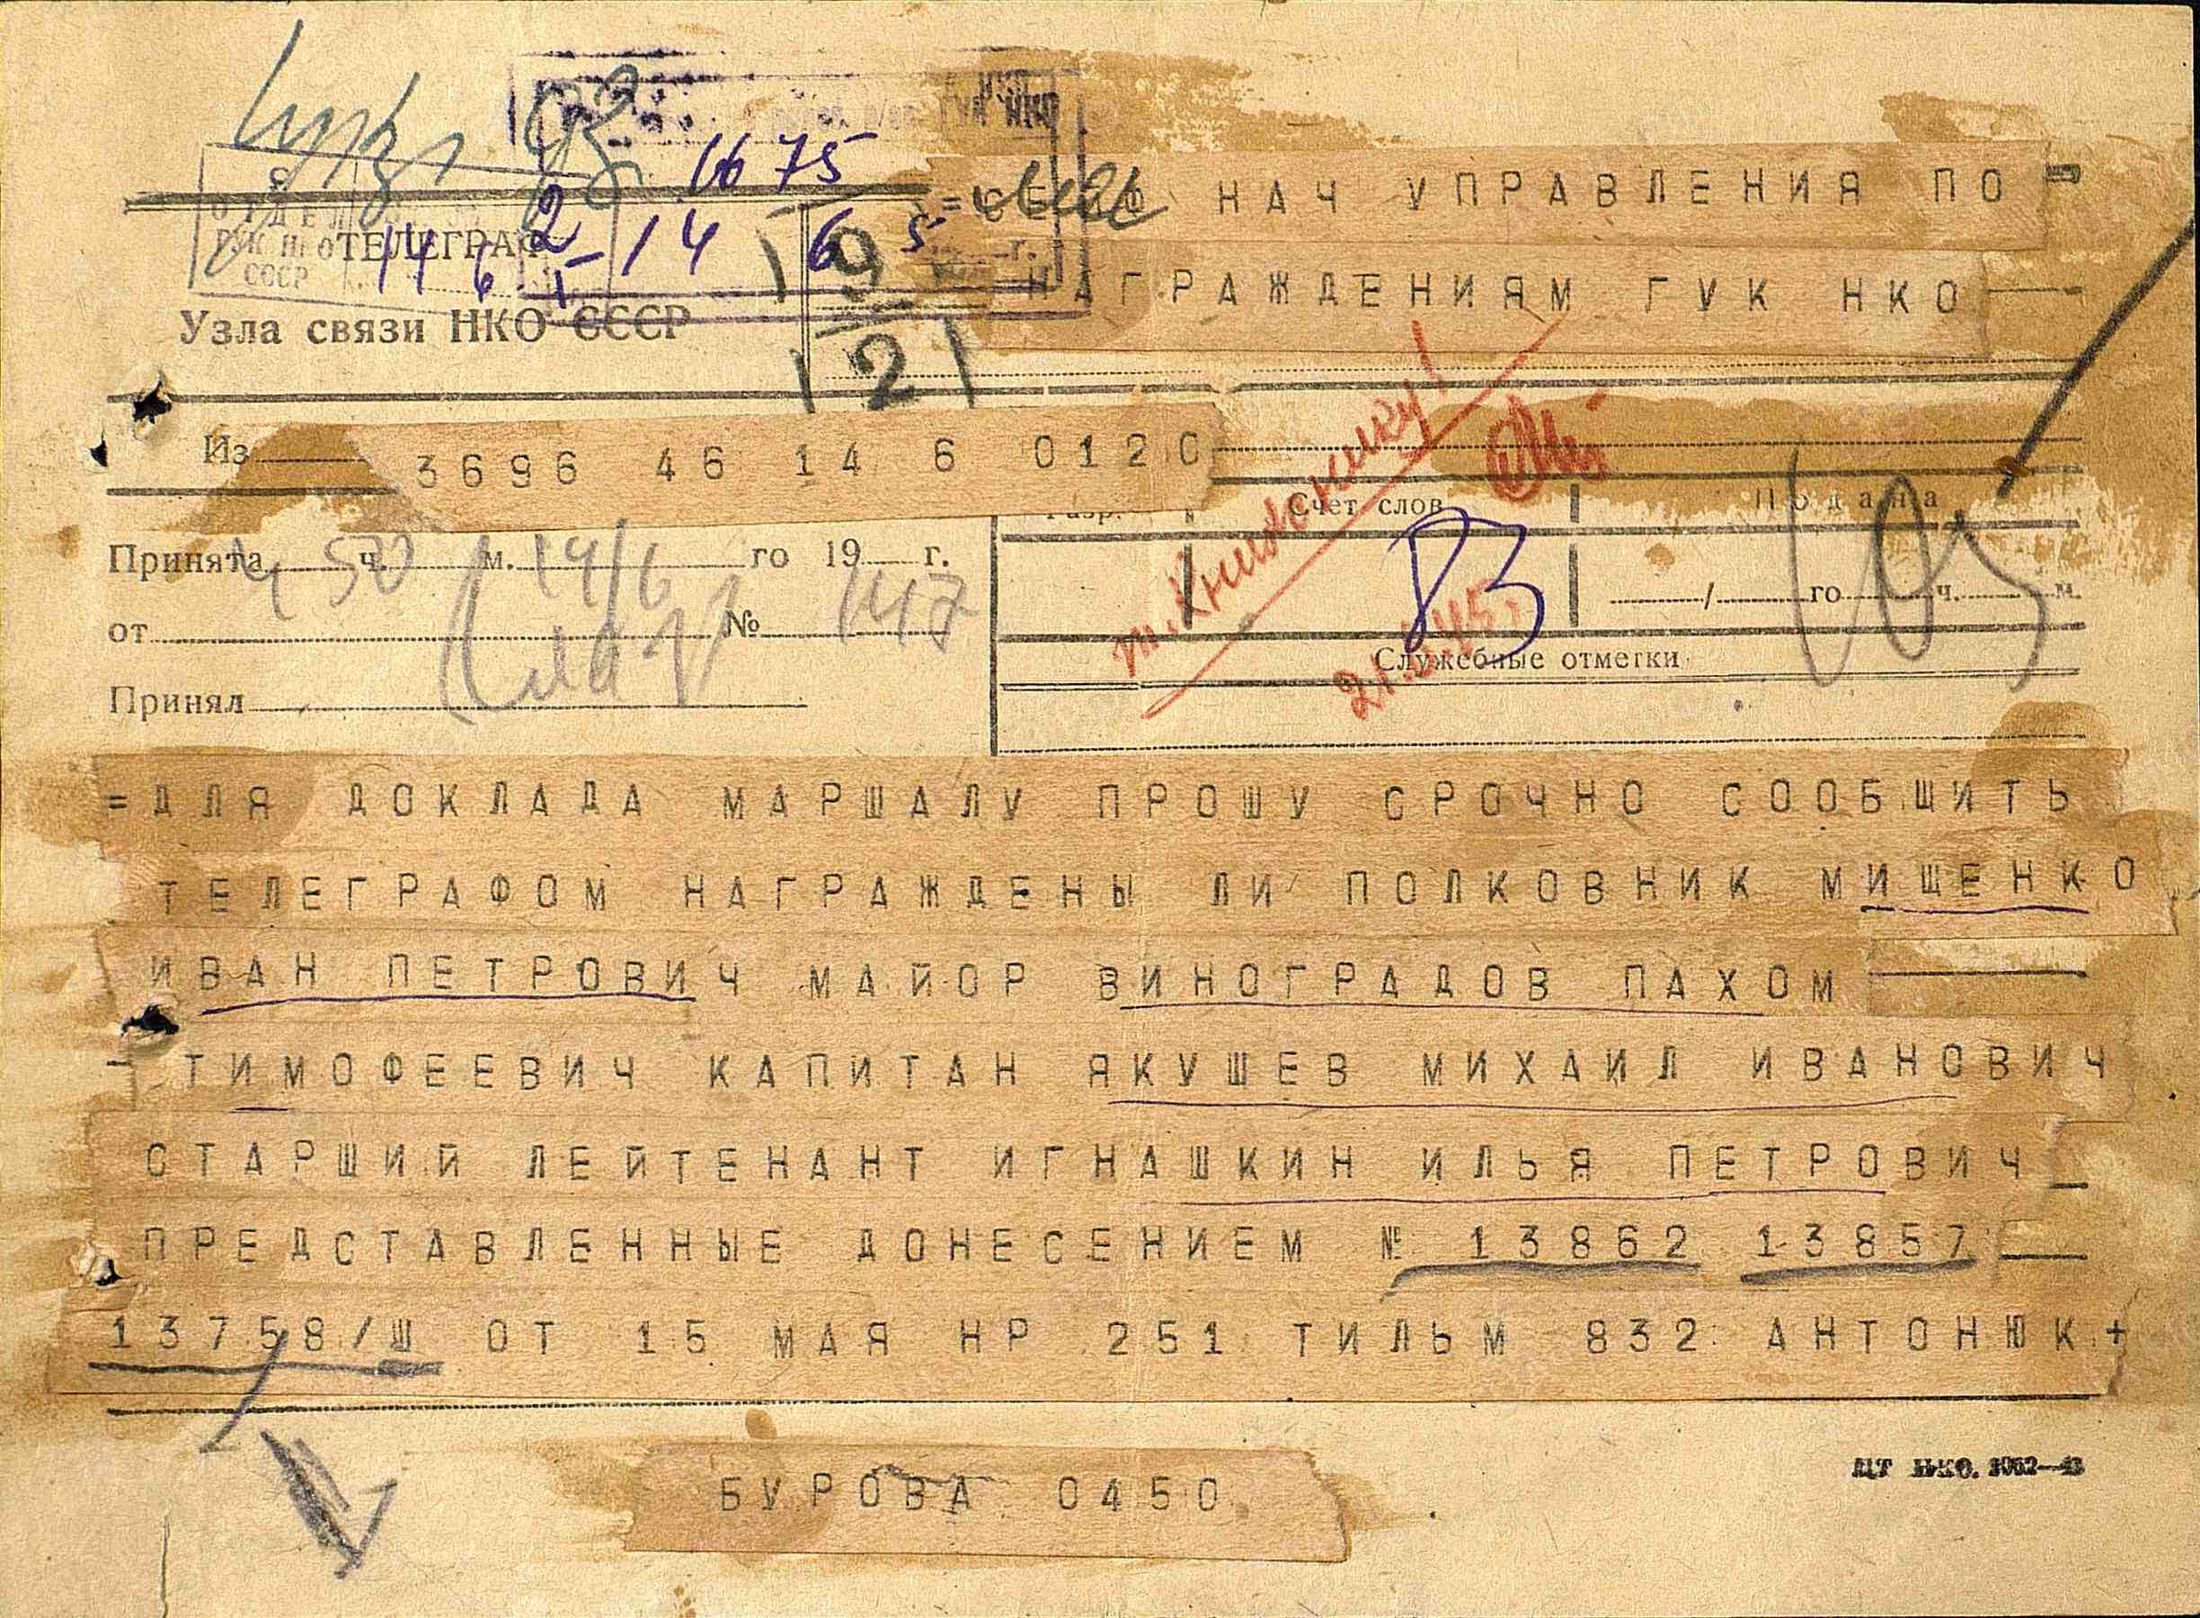 1675
= НАЧ УПРАВЛЕНИЯ ПО =
ОТДЕЛ
ТЕЛЕГРАФ
2 14 6 5
СССР
НАГРАЖДЕНИЯМ ГУК НКО
9
Узла связи НКО СССР
2
т. Книжнику!
Из 3696 46 14 6 0120
Разр. № Счет слов Подана
83
Принята 4 ч. 50 м. 14/6 го 19 г.
/ го ч. м.
от № 147
21. 45.
Служебные отметки
Принял
=ДЛЯ ДОКЛАДА МАРШАЛУ ПРОШУ СРОЧНО СООБЩИТЬ
ТЕЛЕГРАФОМ НАГРАЖДЕНЫ ЛИ ПОЛКОВНИК МИЩЕНКО
ИВАН ПЕТРОВИЧ МАЙОР ВИНОГРАДОВ ПАХОМ
ТИМОФЕЕВИЧ КАПИТАН ЯКУШЕВ МИХАИЛ ИВАНОВИЧ
СТАРШИЙ ЛЕЙТЕНАНТ ИГНАШКИН ИЛЬЯ ПЕТРОВИЧ
ПРЕДСТАВЛЕННЫЕ ДОНЕСЕНИЕМ № 13862 13857
13758/Ш ОТ 15 МАЯ НР 251 ТИЛЬМ 832 АНТОНЮК+
БУРОВА 0450